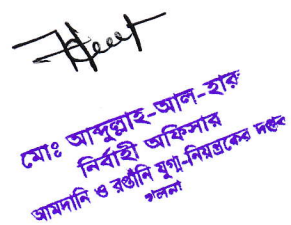 মোঃ আব্দুল্লাহ-আল-হারু
নির্বাহী অফিসার
আমদানি ও রপ্তানি যুগ্ম-নিয়ন্ত্রকের দপ্তর
খুলনা